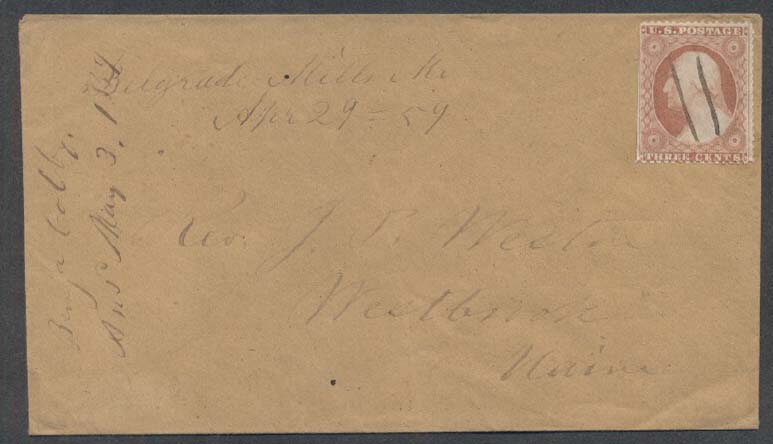 Belgrade Mills Me
Apr 29 = 59
U.S. POSTAGE
THREE CENTS
Rev. J. P. Weston
Westbrook
Maine
Benja Colby.
Ans May 3,